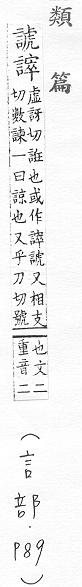 類篇
虛訝切誑也或作又相支
切數諫一曰諒也又乎刀切號
也文二
重音二
(言部·P89)